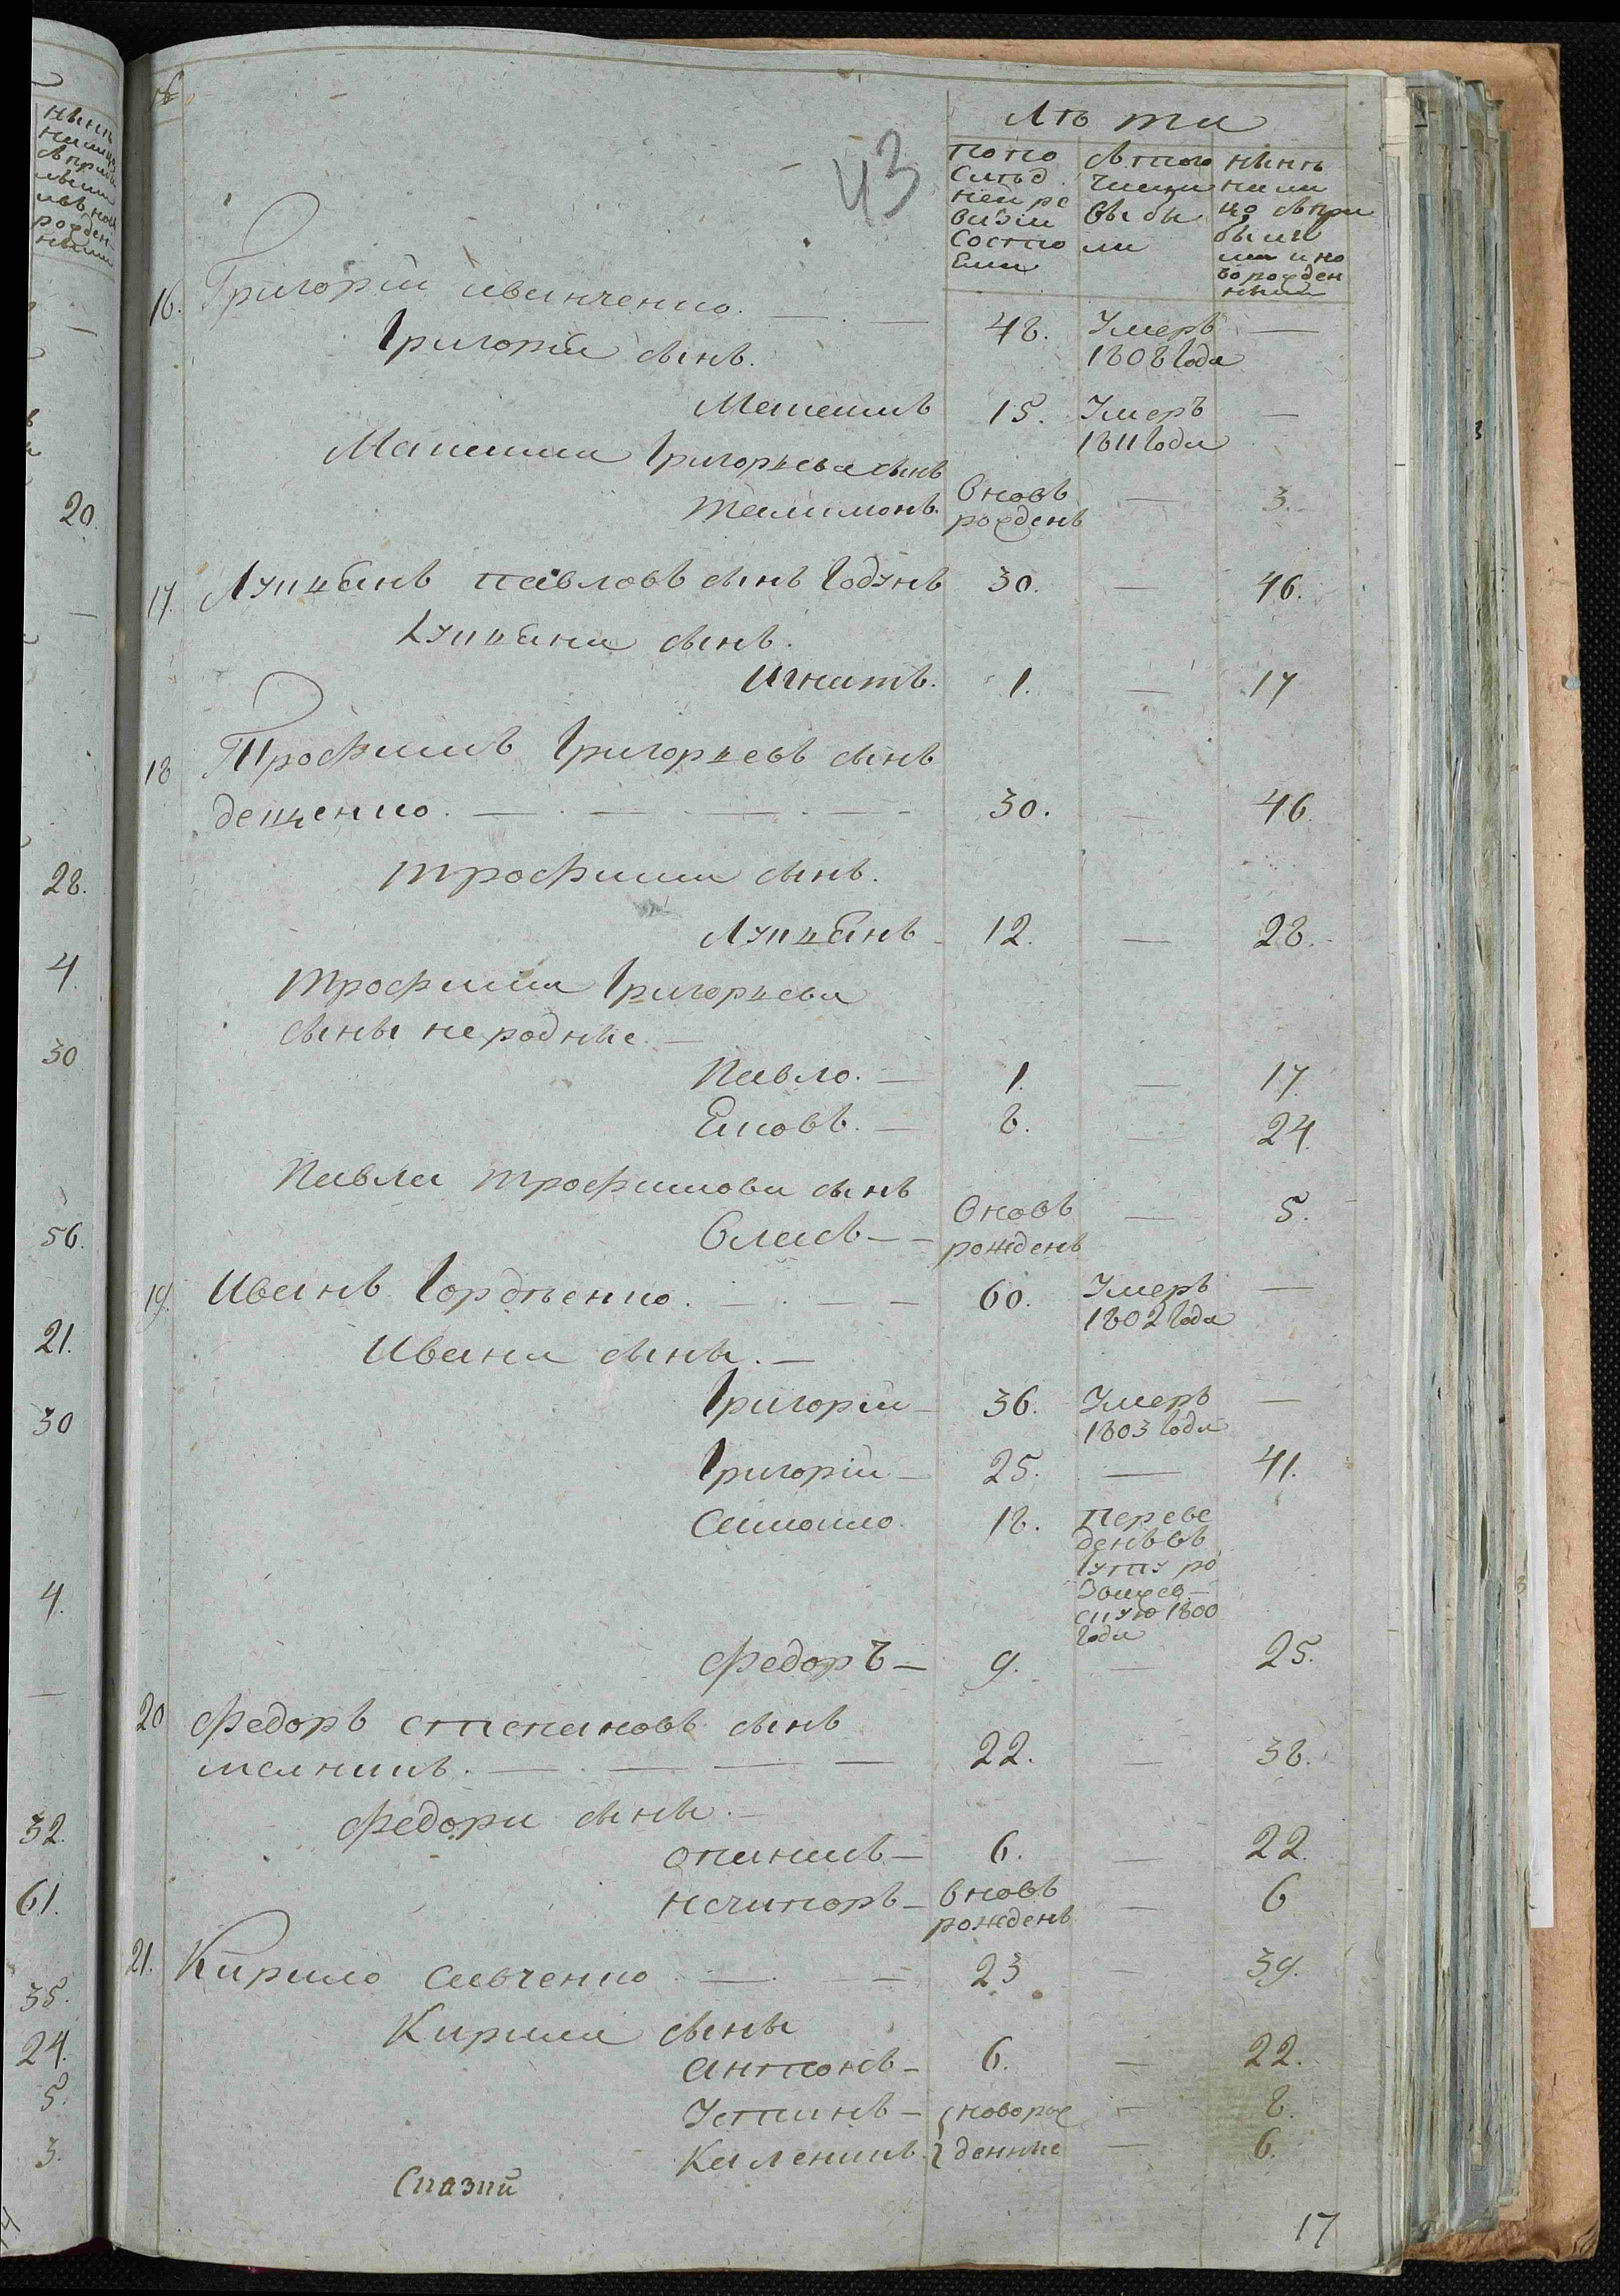 №
43
Лѣта
по по
слѣд
ней ре
визіи
состо
яли
Въ того
числа
выбы
ли
нынѣ
на ли
цо съ при
былы
ми и но
ворожден
ными
16. Григорій иванченко. 48. Умеръ —
1808 года
Григорія сынъ.
Максимъ 15. Умеръ —
1811 года
Максима Григорьева сынъ
Тилимонъ. вновь — 3.
рожденъ
17. Лукьянъ павловъ сынъ Годунъ 30. — 46.
Лукьяна сынъ.
Игнатъ. 1. — 17
18 Трофимъ Григорьевъ сынъ
деценко. 30. — 46.
трофима сынъ.
Лукьянъ 12. — 28.
трофима Григорьева
сыны не родные —
Павло. — 1. — 17.
Яковъ. — 8. — 24.
Павла трофимова сынъ
Власъ — вновь — 5.
рожденъ
19. Иванъ Гордѣенко. 60. Умеръ —
1802 года
Ивана сыны. —
Григорій — 36. Умеръ —
1803 года
Григорій — 25. — 41.
Самойло. 18. переве
денъ въ
1800
года
Федоръ — 9. — 25.
20 Федоръ степановъ сынъ
мелникъ. 22. — 38.
Федора сыны. —
опанасъ — 6. — 22.
нечипоръ — вновь — 6
рожденъ
21. Кирило савченко 23 — 39.
Кирила сыны
антонъ — 6. — 22.
Устинъ — новорож — 8.
Каленикъ. денные — 6.
Сказкй
17
нынѣ
рожден
ными
20.
28.
4.
30
56.
21.
30
4.
32.
61.
35.
24.
5.
3.